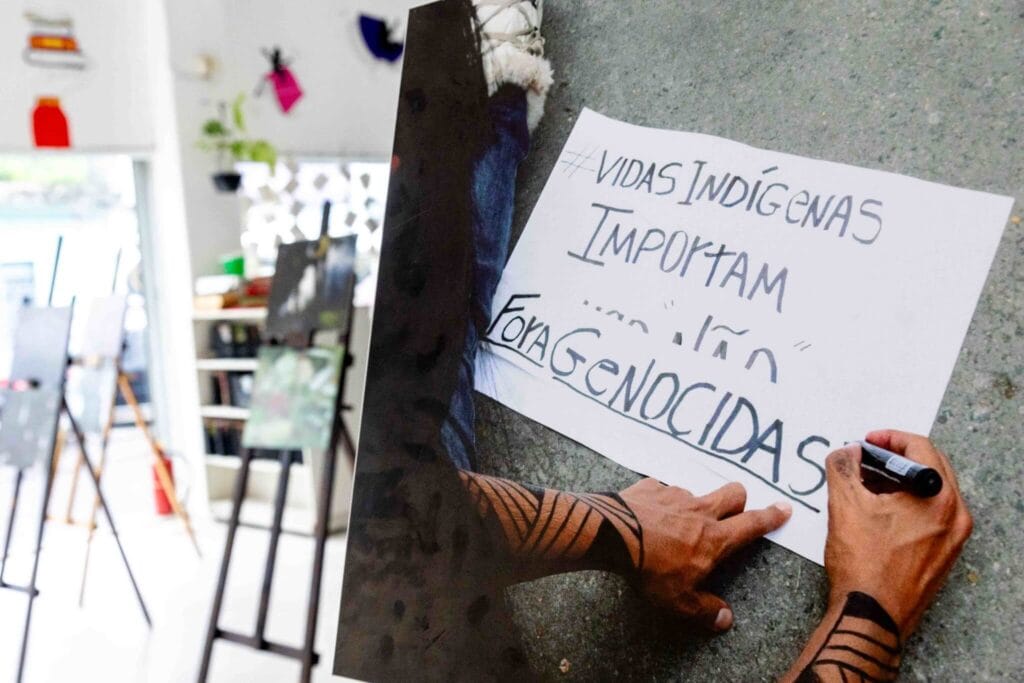 #VIDAS INDÍGENAS
IMPORTAM
FORA GENOCIDAS